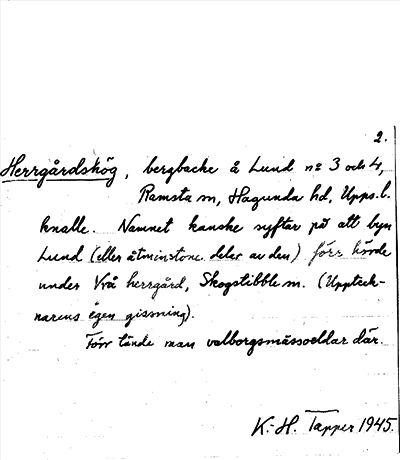 2.
Herrgårdshög, bergbacke å Lund no 3 och 4,
Ramsta sn, Hagunda hd, Upps. l.
knalle. Namnet kanske syftar på att byn
Lund (eller åtminstone delar av den) förr hörde
under Vrå herrgård, Skogstibble sn. (Uppteck-
narens egen gissning).
Förr tände man valborgsmässoeldar där.
K.-H. Tapper 1945.